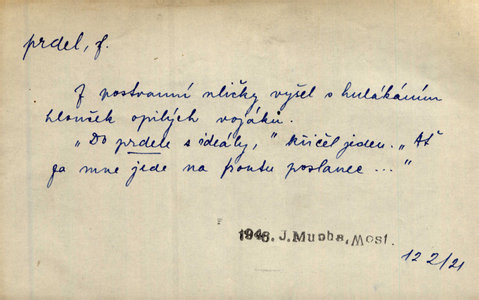 prdel, f.
Z postranní uličky vyšel s hulákáním
hlouček opilých vojáků.
„Do prdele s ideály," křičel jeden. „Ať
za mne jede na frontu poslanec ..."
1946. J. Mucha, Most.
122/21